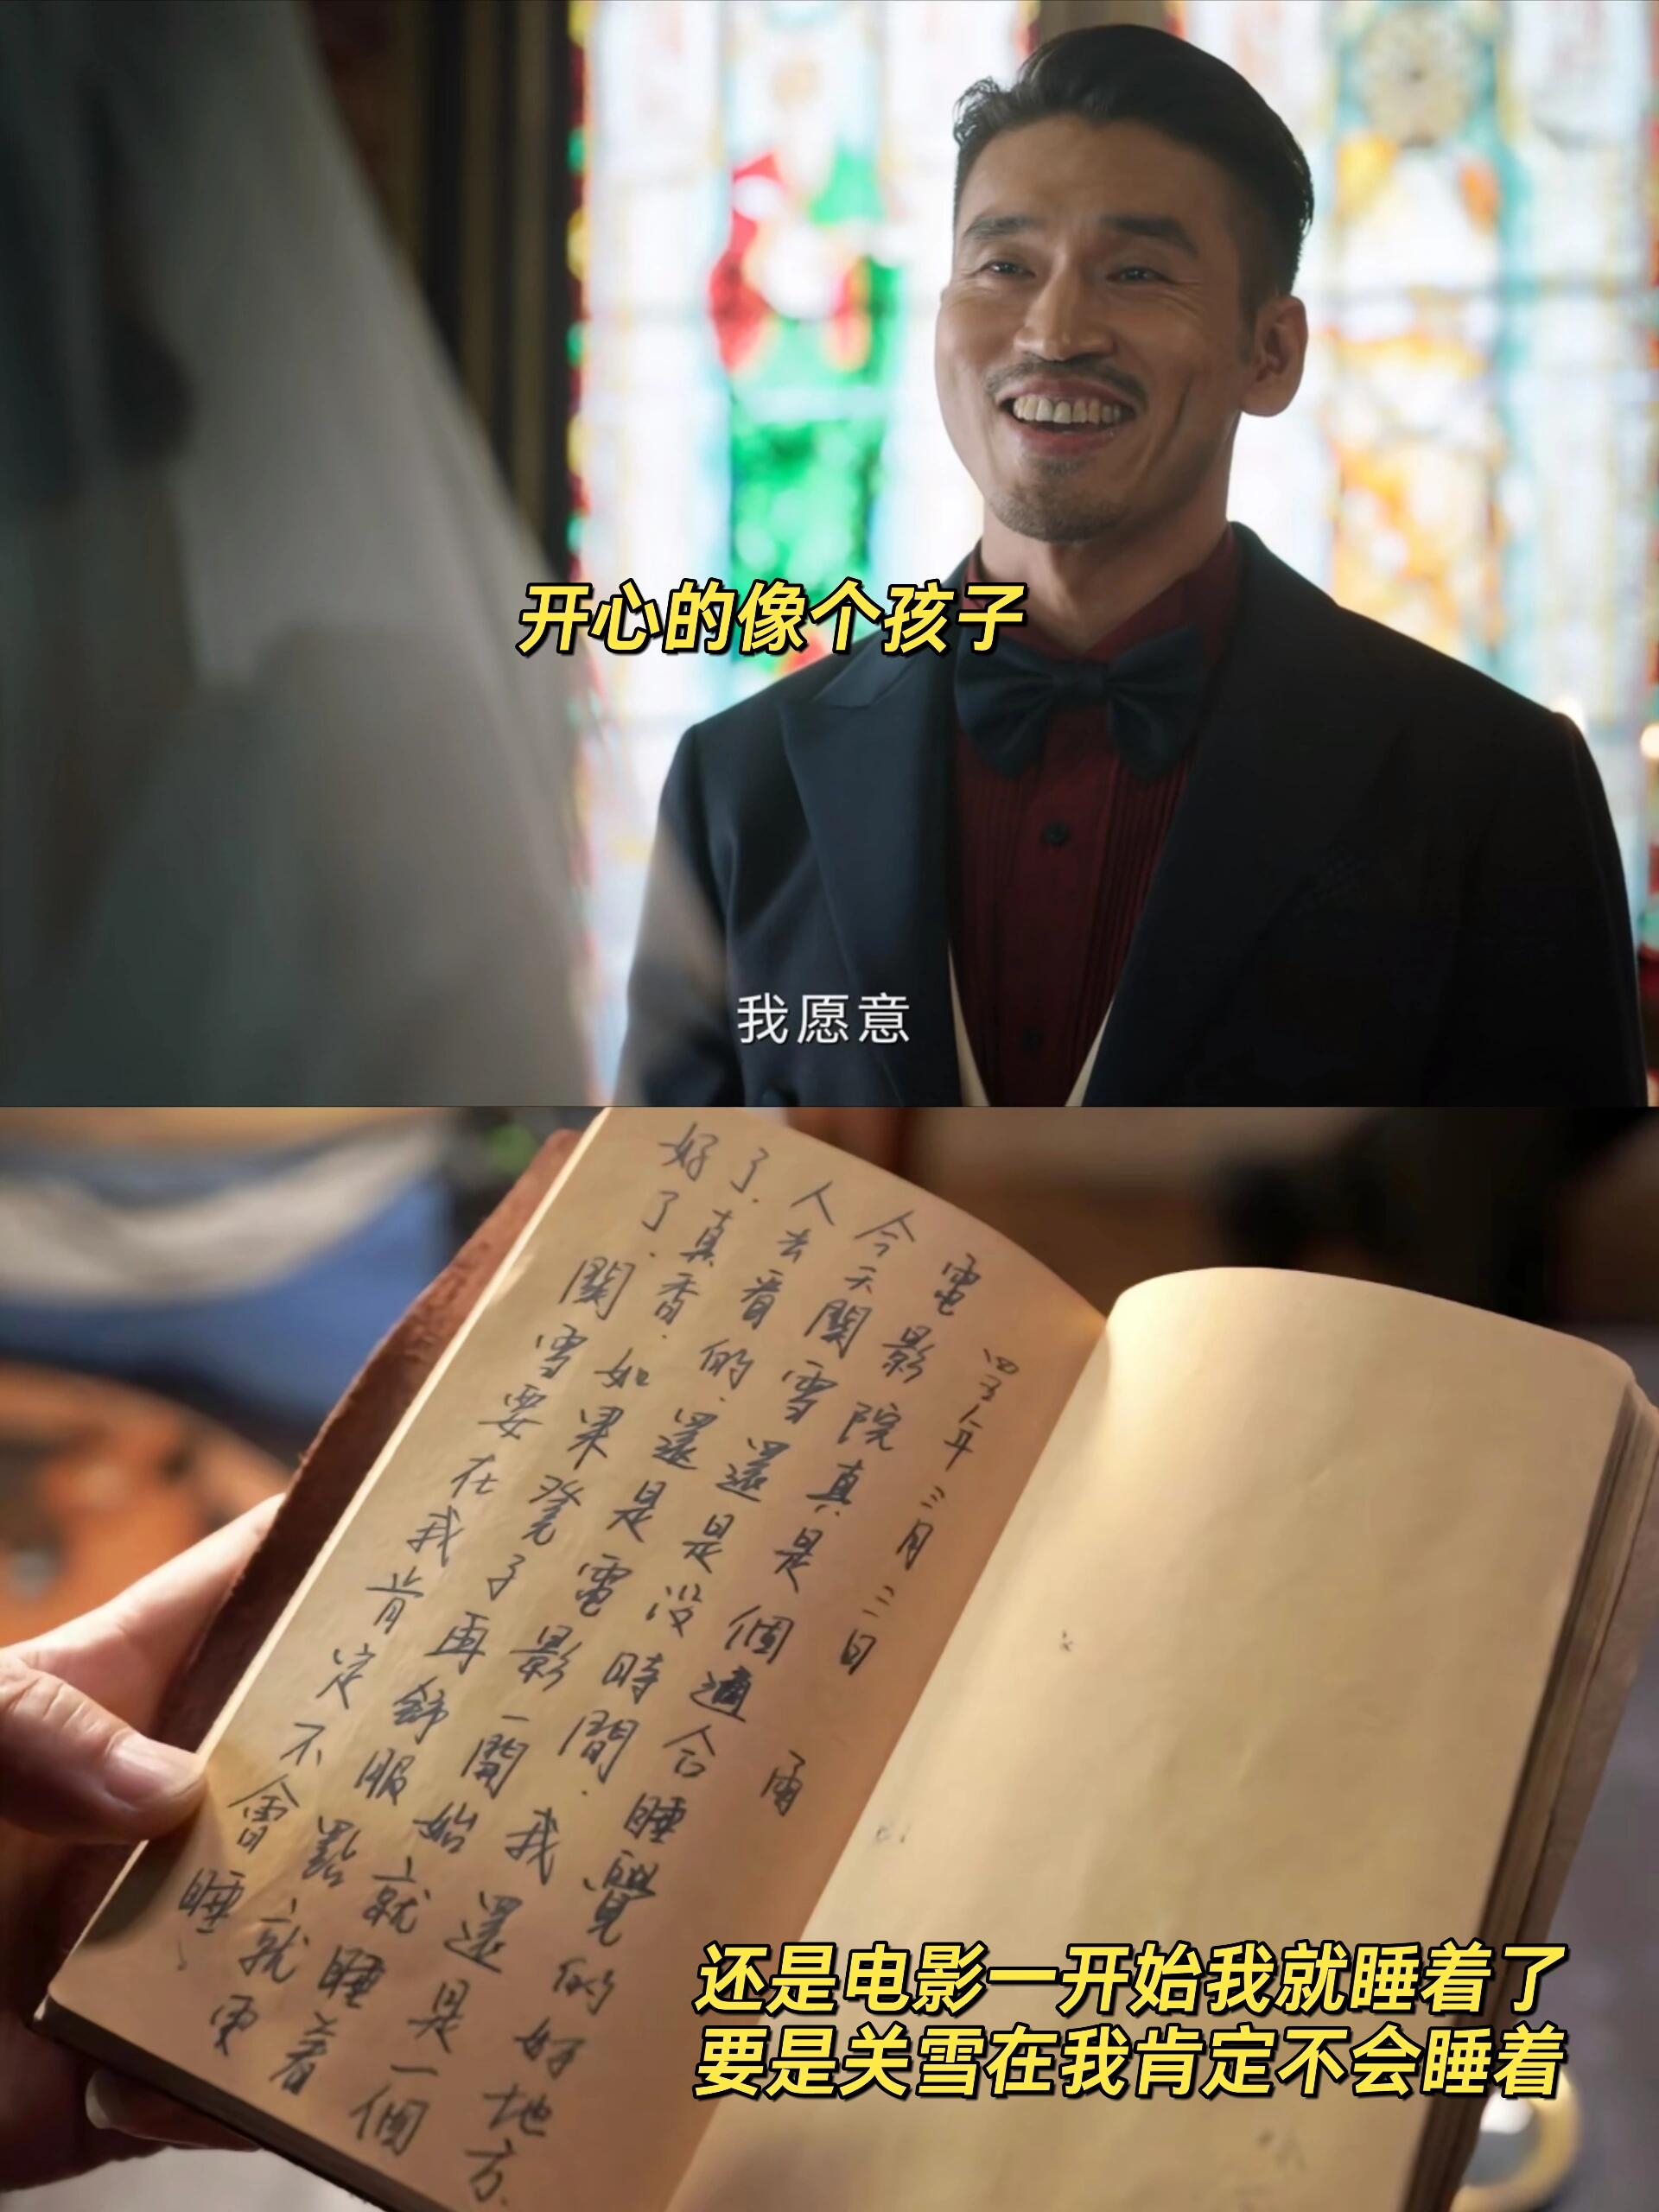 开心的像个孩子
我愿意
四年三月三日 雨
電影院真是個適合睡覺的好地方.
今天關雪還是没時間.我還是一個
人去看的.還是電影一開始就睡着
了.真香.如果凳子再舒服點就更
好了.關雪要在我肯定不會睡、
还是电影一开始我就睡着了
要是关雪在我肯定不会睡着